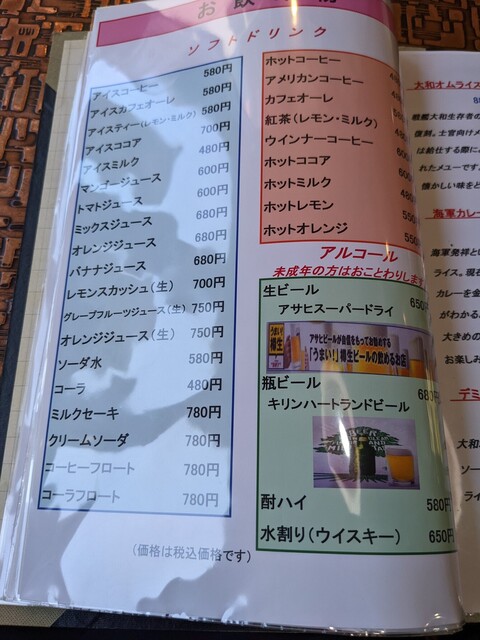 お飲
ソフトドリンク
アイスコーヒー 580円
アイスカフェオーレ 580円
アイスティー(レモン・ミルク) 580円
アイスココア 700円
アイスミルク 480円
マンゴージュース 600円
トマトジュース 600円
ミックスジュース 680円
オレンジジュース 680円
バナナジュース 680円
レモンスカッシュ(生) 700円
グレープフルーツジュース(生) 750円
オレンジジュース(生) 750円
ソーダ水 580円
コーラ 480円
ミルクセーキ 780円
クリームソーダ 780円
コーヒーフロート 780円
コーラフロート 780円
(価格は税込価格です)
ホットコーヒー
アメリカンコーヒー
カフェオーレ
紅茶(レモン・ミルク)
ウインナーコーヒー
ホットココア
ホットミルク
ホットレモン 550
ホットオレンジ 550
アルコール
未成年の方はおことわりします
生ビール 650
アサヒスーパードライ
うまい!樽生
アサヒビールが自信をもってお勧めする
「うまい!」樽生ビールの飲めるお店
瓶ビール 680
キリンハートランドビール
酎ハイ 580円
水割り(ウイスキー) 650円
大和オムライス
戦艦大和生存者の
復刻。士官向けメ
は給仕する際に
れたメニューです
懐かしい味をと
海軍カレー
海軍発祥とい
ライス。現在
カレーを金
がわかる
大きめの
お楽しみ
デミ
大和
ソー
ライ